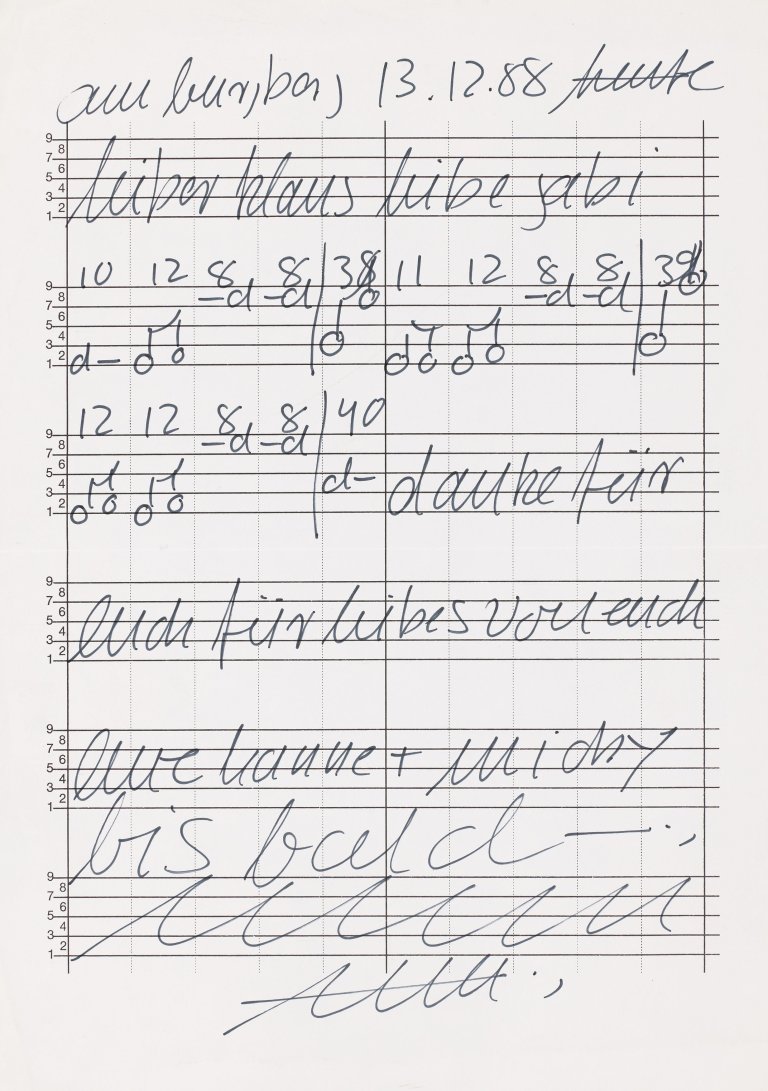 am burgberg, 13.12.88 heute
9 8 7 6 5 4 3 2 1
lieber klaus liebe gabi
10 12 8 8 38 11 12 8 8 39
–d –d –d –d
9 8 7 6 5 4 3 2 1
d–
12 12 8 8 40
–d –d
9 8 7 6 5 4 3 2 1
d– danke für
9 8 7 6 5 4 3 2 1
euch für liebes von euch
9 8 7 6 5 4 3 2 1
eure hanne + micky
bis bald —.,
9 8 7 6 5 4 3 2 1